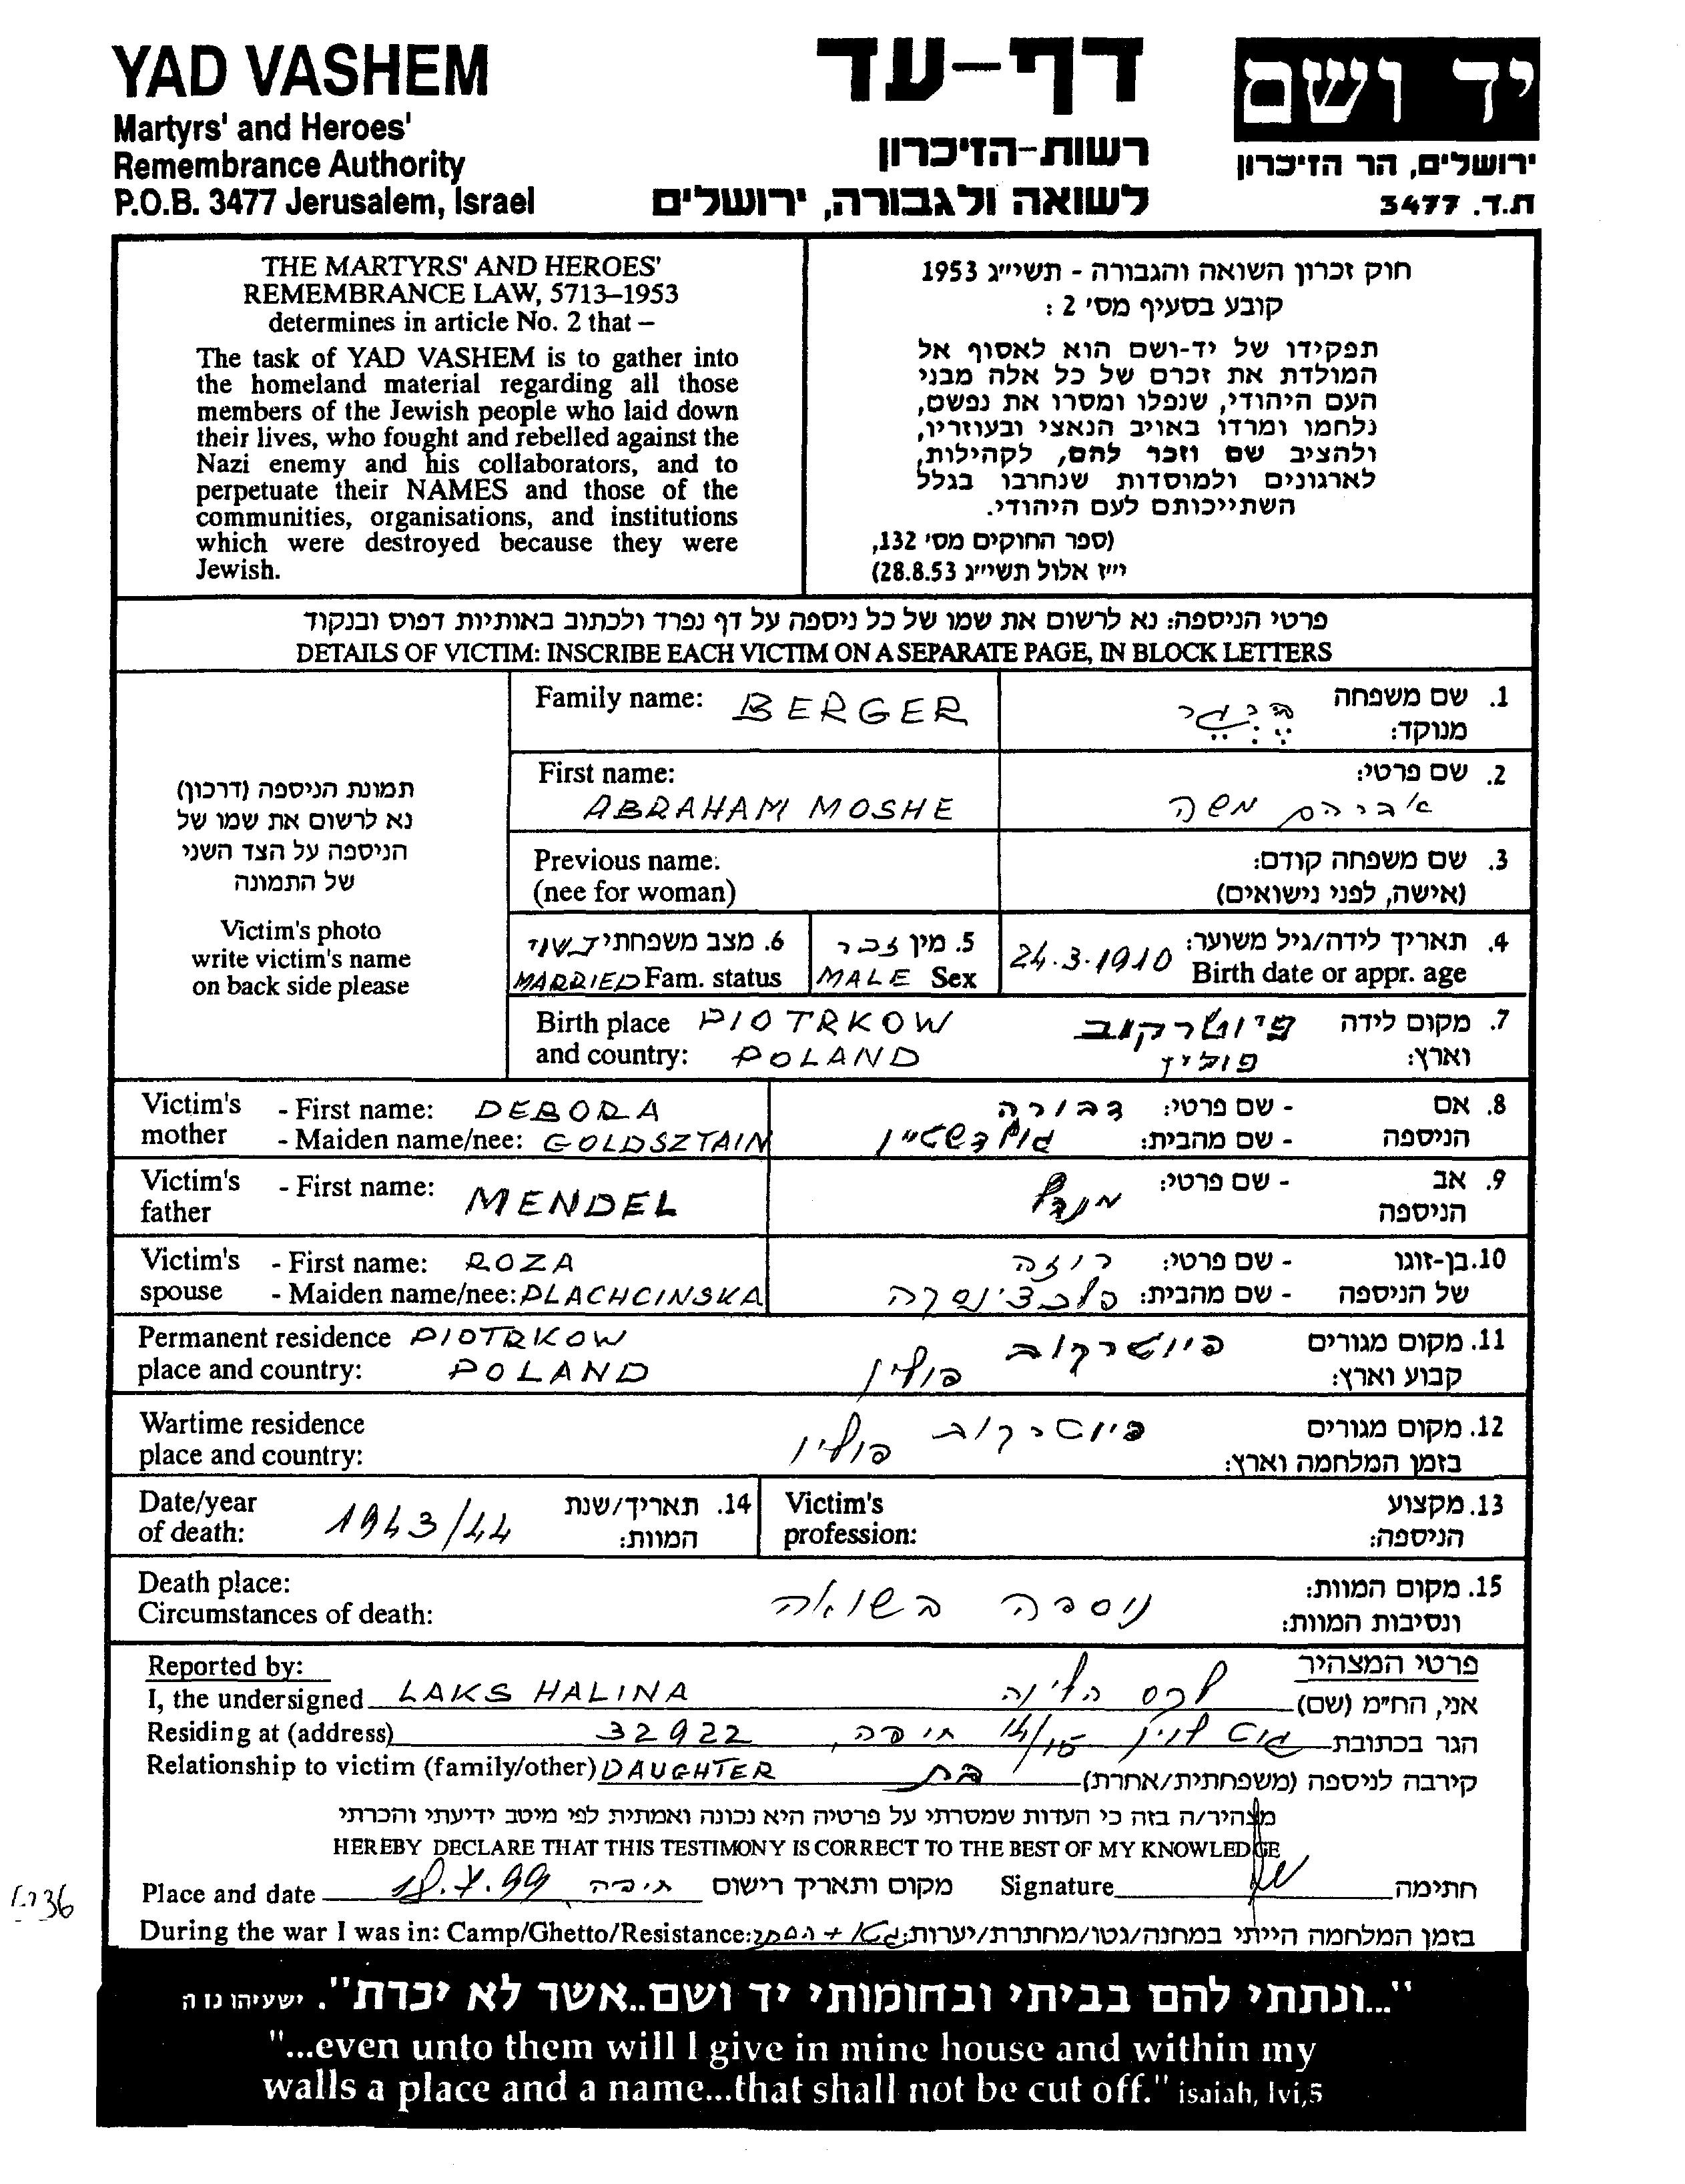 YAD VASHEM
Martyrs' and Heroes'
Remembrance Authority
P.O.B. 3477 Jerusalem, Israel
דף-עד
רשות-הזיכרון
לשואה ולגבורה, ירושלים
יד ושם
ירושלים, הר הזיכרון
ת.ד. 3477
THE MARTYRS' AND HEROES'
REMEMBRANCE LAW, 5713–1953
determines in article No. 2 that –
The task of YAD VASHEM is to gather into
the homeland material regarding all those
members of the Jewish people who laid down
their lives, who fought and rebelled against the
Nazi enemy and his collaborators, and to
perpetuate their NAMES and those of the
communities, organisations, and institutions
which were destroyed because they were
Jewish.
חוק זכרון השואה והגבורה - תשי״ג 1953
קובע בסעיף מס׳ 2 :
תפקידו של יד-ושם הוא לאסוף אל
המולדת את זכרם של כל אלה מבני
העם היהודי, שנפלו ומסרו את נפשם,
נלחמו ומרדו באויב הנאצי ובעוזריו,
ולהציב שם וזכר להם, לקהילות,
לארגונים ולמוסדות שנחרבו בגלל
השתייכותם לעם היהודי.
(ספר החוקים מס׳ 132,
י״ז אלול תשי״ג 28.8.53)
פרטי הניספה: נא לרשום את שמו של כל ניספה על דף נפרד ולכתוב באותיות דפוס ובנקוד
DETAILS OF VICTIM: INSCRIBE EACH VICTIM ON A SEPARATE PAGE, IN BLOCK LETTERS
תמונת הניספה (דרכון)
נא לרשום את שמו של
הניספה על הצד השני
של התמונה
Victim's photo
write victim's name
on back side please
Family name: BERGER
1. שם משפחה ברגר
מנוקד:
First name:
ABRAHAM MOSHE
2. שם פרטי:
אברהם משה
Previous name:
(nee for woman)
3. שם משפחה קודם:
(אישה, לפני נישואים)
4. תאריך לידה/גיל משוער: 24.3.1910
Birth date or appr. age
5. מין זכר
MALE Sex
6. מצב משפחתי נשוי
MARRIED Fam. status
Birth place PIOTRKOW
and country: POLAND
7. מקום לידה פיוטרקוב
וארץ: פולין
Victim's - First name: DEBORA
mother - Maiden name/nee: GOLDSZTAIN
8. אם - שם פרטי: דבורה
הניספה - שם מהבית: גולדשטיין
Victim's - First name: MENDEL
father
9. אב - שם פרטי: מנדל
הניספה
Victim's - First name: ROZA
spouse - Maiden name/nee: PLACHCINSKA
10. בן-זוגו - שם פרטי: רוזה
של הניספה - שם מהבית:
Permanent residence PIOTRKOW
place and country: POLAND
11. מקום מגורים פיוטרקוב
קבוע וארץ: פולין
Wartime residence
place and country:
12. מקום מגורים פיוטרקוב פולין
בזמן המלחמה וארץ:
Date/year
of death: 1943/44
14. תאריך/שנת
המוות:
Victim's
profession:
13. מקצוע
הניספה:
Death place:
Circumstances of death:
15. מקום המוות: נוספה בשואה
ונסיבות המוות:
Reported by:
פרטי המצהיר
I, the undersigned LAKS HALINA
אני, הח״מ (שם) לקס הלינה
Residing at (address) 32922
הגר בכתובת 14/15 חיפה,
Relationship to victim (family/other) DAUGHTER
קירבה לניספה (משפחתית/אחרת) בת
מצהיר/ה בזה כי העדות שמסרתי על פרטיה היא נכונה ואמתית לפי מיטב ידיעתי והכרתי
HEREBY DECLARE THAT THIS TESTIMONY IS CORRECT TO THE BEST OF MY KNOWLEDGE
Place and date 18.7.99 חיפה מקום ותאריך רישום Signature חתימה
During the war I was in: Camp/Ghetto/Resistance: בזמן המלחמה הייתי במחנה/גטו/מחתרת/יערות: גטו +
"...ונתתי להם בביתי ובחומותי יד ושם..אשר לא יכרת". ישעיהו נו ה
"...even unto them will I give in mine house and within my
walls a place and a name...that shall not be cut off." isaiah, lvi,5